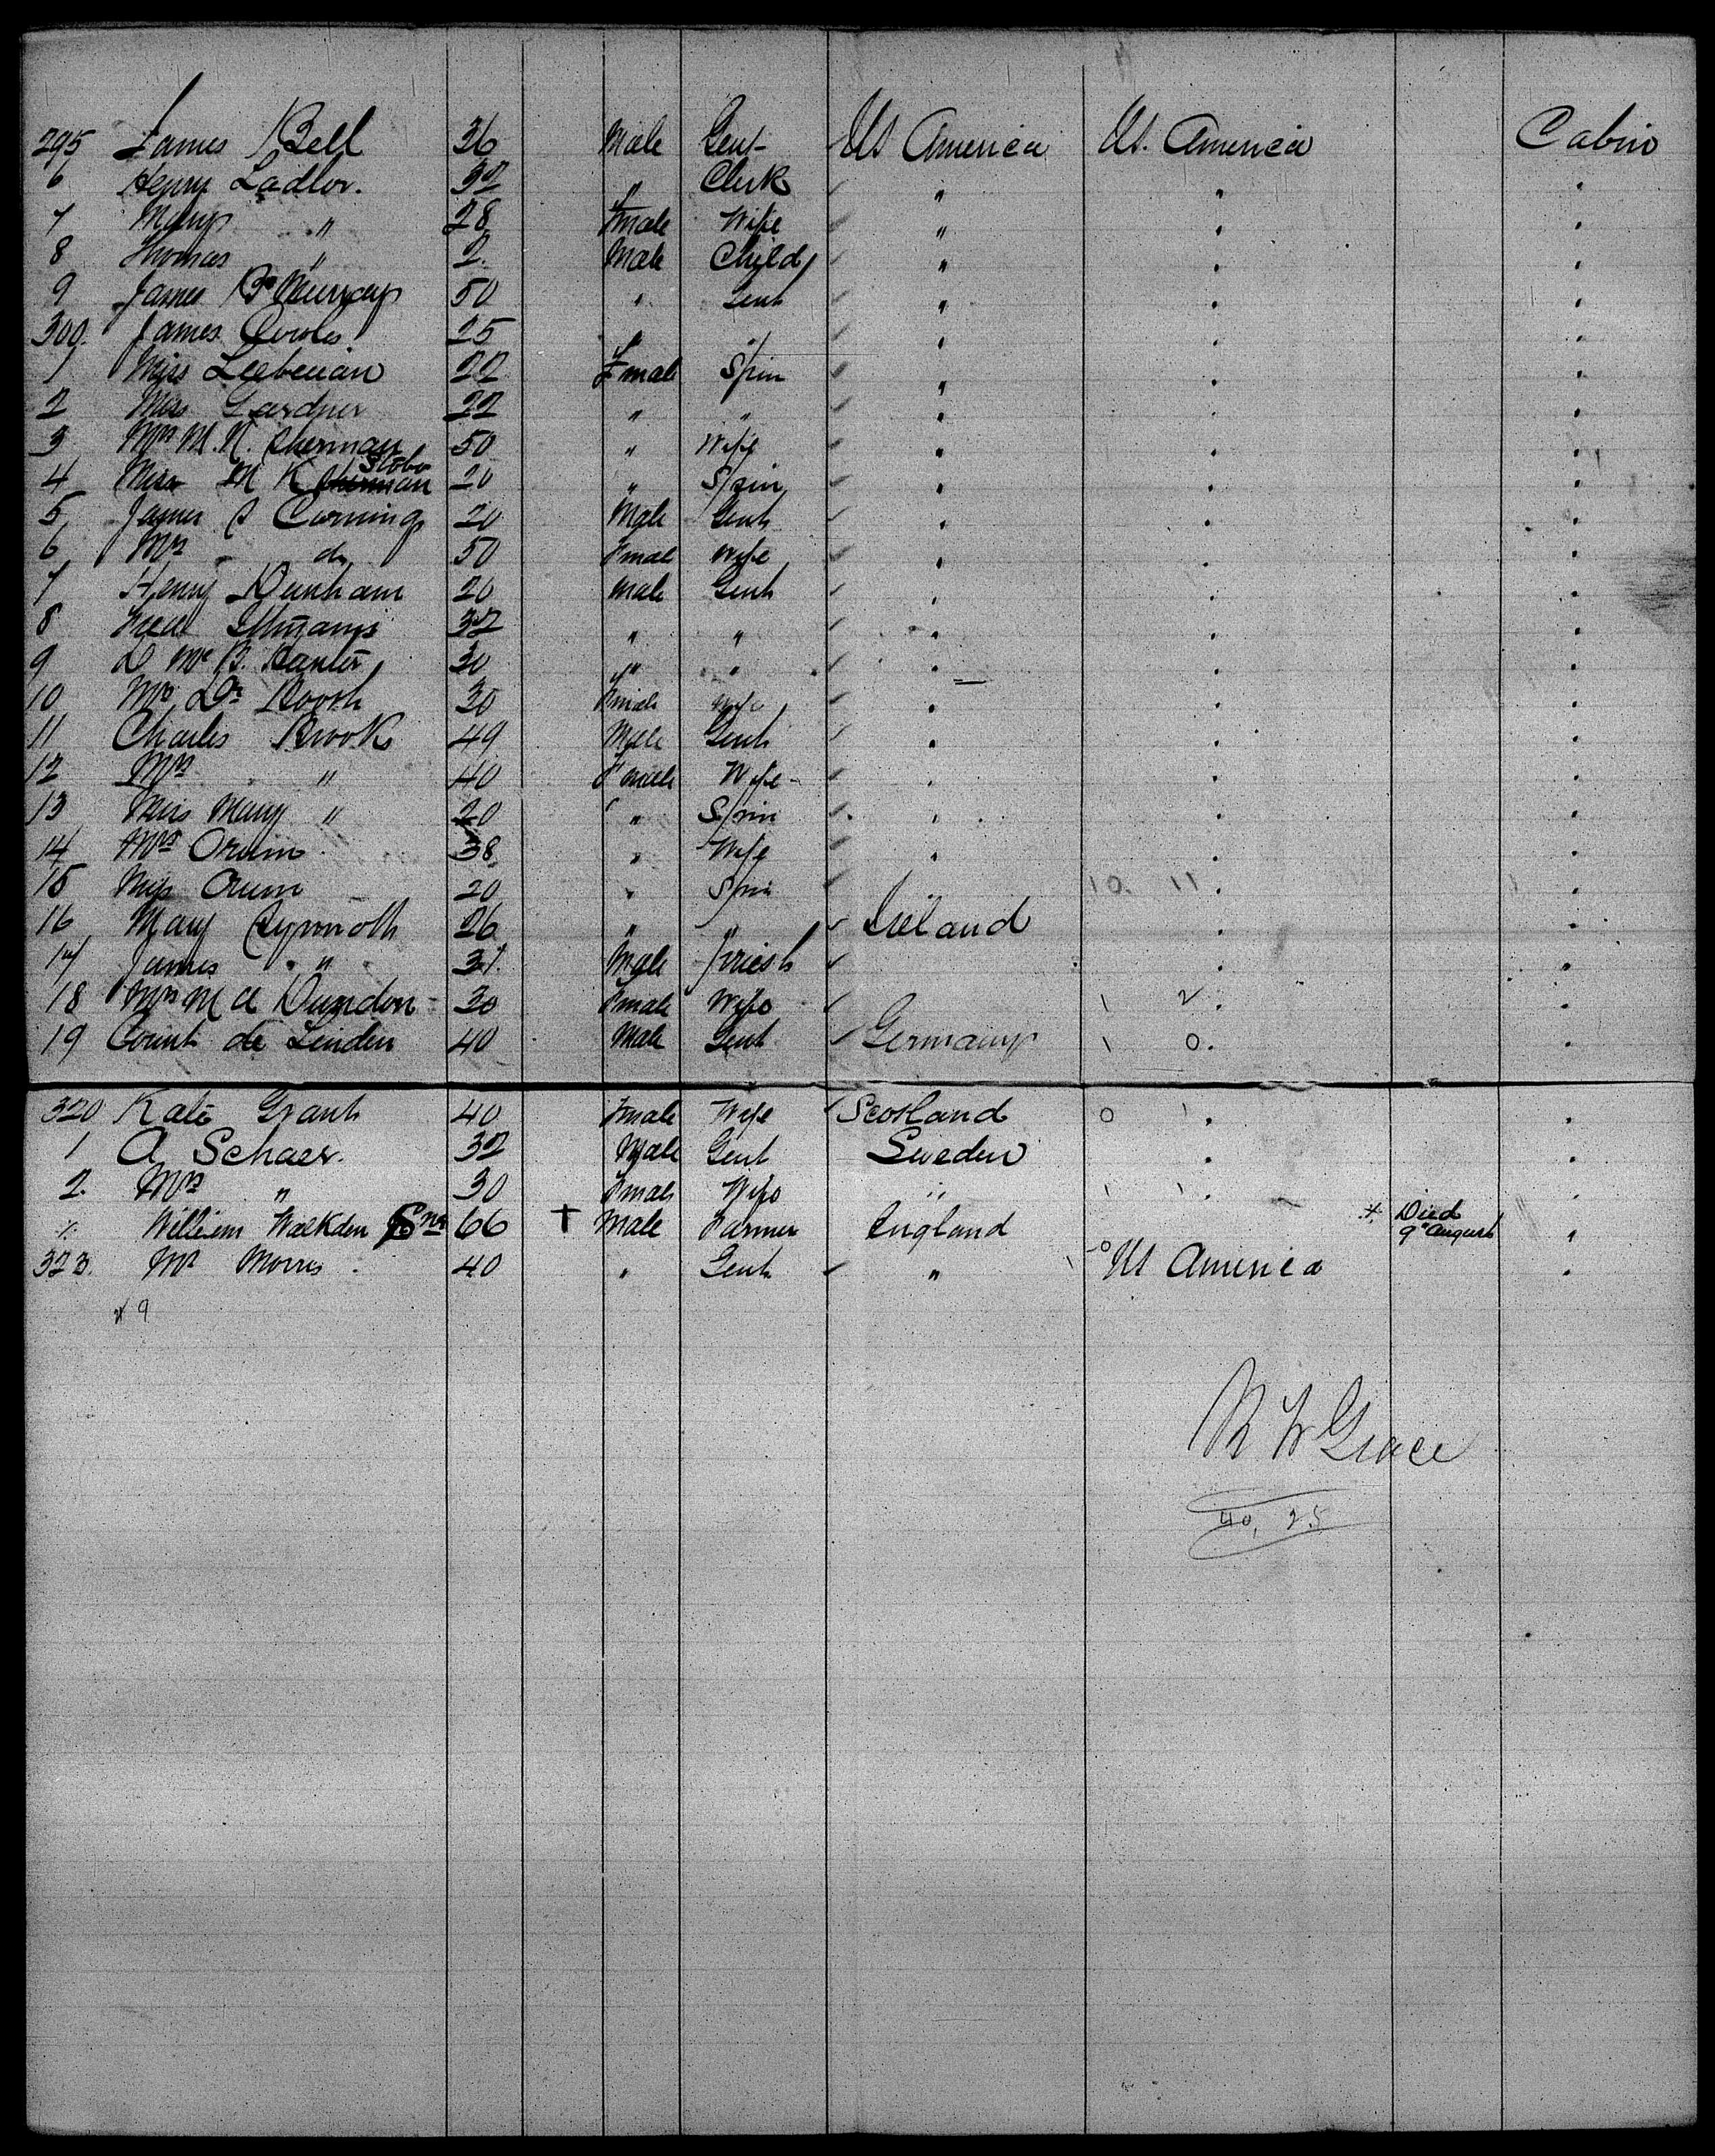 295 James Bell 36 Male Gent Us America Us. America Cabin
6 Henry Ladlor. 32 " Clerk " " "
7 Mary " 28 Fmale Wife " " "
8 Thomas " 2. Male Child " " "
9 James B Murray 50 " Gent " " "
300. James 25 " " " " "
1 Miss 22 Fmale Spin " " "
2 Miss Gardner 22 " " " " "
3 Mrs M. N. Sherman 50 " Wife " " "
4 Miss M K Stobo 20 " Spin " " "
5 James S Cumming 20 Male Gent " " "
6 Mrs do 50 Fmale Wife " " "
7 Henry Dunham 20 Male Gent " " "
8 Fred 32 " " " " "
9 D Mc B. 30 " " " " "
10 Mrs Dr Booth 30 Fmale Wife " " "
11 Charles Brooks 49 Male Gent " " "
12 Mrs " 40 Fmale Wife " " "
13 Miss Mary " 20 " Spin " " "
14 Mrs Orum 38 " Wife " " "
15 Miss Orum 20 " Spin 10. 11 " "
16 Mary 26 " " Ireland " "
17 James " 31. Male priest " "
18 Mrs M A Dundon 30 Fmale Wife 1 2 " "
19 Count de Linden 40 Male Gent Germany 1 0. "
320 Kate Grant 40 Fmale Wife Scotland 0 1 " "
1 A Schaer. 32 Male Gent Sweden " "
2. Mrs " 30 Fmale Wife " 1 1 " "
William Walkden Snr 66 + Male Farmer England + Died 9th August "
323. Mr Morris 40 " Gent " Us America "
9
W Grace
40, 25